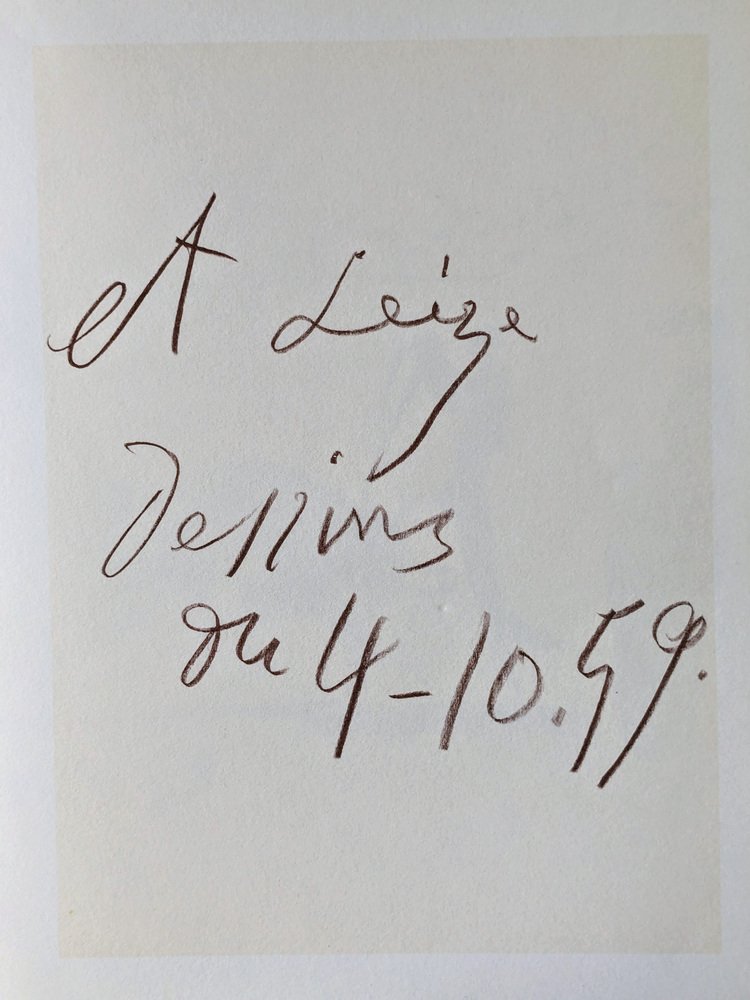 A Leize
Dessins
du 4-10.59.